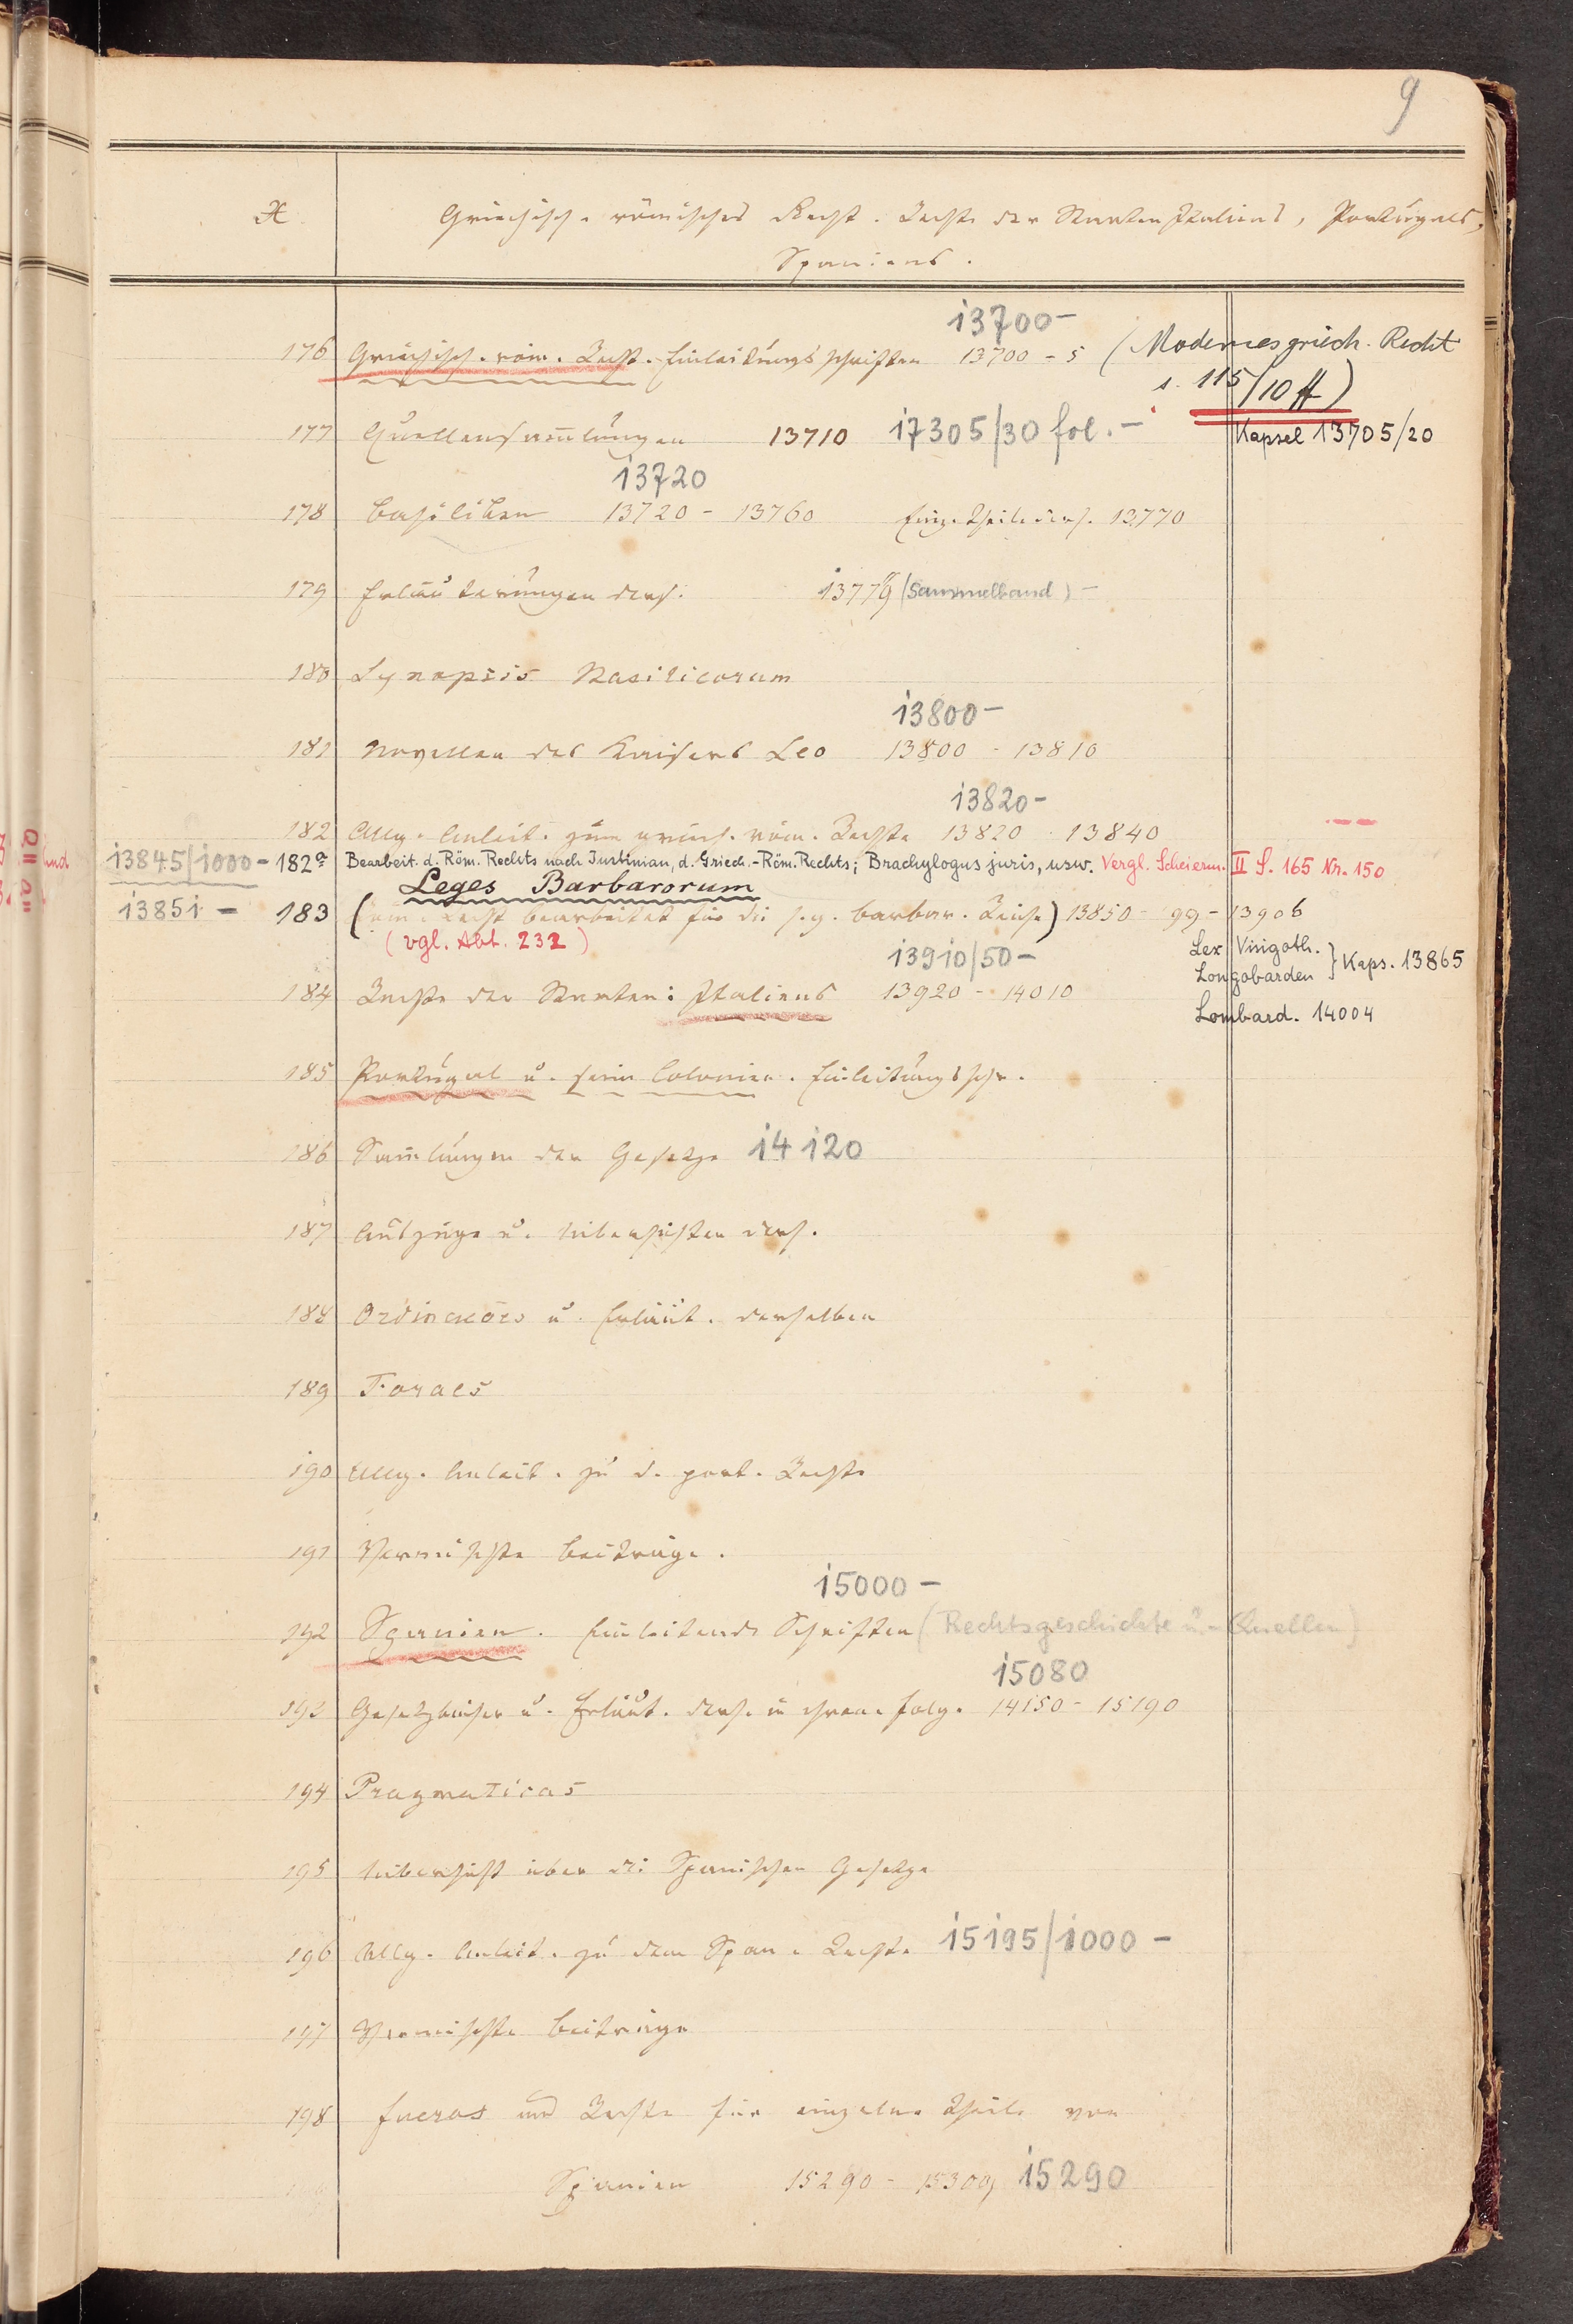 9
X
Griechisch-römisches Recht. Rechte der Staaten Italiens, Portugals,
Spaniens.
13700 –
176 Griechisch-röm. Recht. Einleitungsschriften 13700 - 5 (Modernes griech. Recht
s. 115/10 ff)
177 Quellensam̄lungen 13710 17305/30 fol. – Kapsel 13705/20
13720
178 Basiliken 13720 - 13760 Einz. Theile ders. 13770
179 Erläuterungen ders. 13779 (Sammelband) –
180 Synopsis Basilicorum
13800 –
181 Novellen des Kaisers Leo 13800 - 13810
13820 –
182 Allg. Anleit. zum griech. röm. Rechte 13820 - 13840
13845/1000 – 182a Bearbeit. d. Röm. Rechts nach Justinian, d. Griech.-Röm. Rechts; Brachylogus juris, usw. Vergl. Scheierm. II S. 165 Nr. 150
Leges Barbarorum
13851 – 183 (Röm. Recht bearbeitet für die s. g. barbar. Reiche) 13850 - 99 - 13906
(vgl. Abt. 232)
Lex Visigoth.
Longobarden } Kaps. 13865
13910/50 –
184 Rechte der Staaten: Italiens 13920 - 14010
Lombard. 14004
185 Portugal u. seine Colonien. Einleitungsschr.
186 Sam̄lungen der Gesetze 14120
187 Auszüge u. Uebersichten ders.
188 Ordinações u. Erläut. derselben
189 Foraes
190 Allg. Anleit. zu d. port. Rechte
191 Vermischte Beiträge.
15000 –
192 Spanien. Einleitende Schriften (Rechtsgeschichte u. - Quellen)
15080
193 Gesetzbücher u. Erläut. ders. in ihrer Folg. 14150 - 15190
194 Pragmaticas
195 Uebersicht über die Spanischen Gesetze
196 Allg. Anleit. zu dem Span. Rechte 15195/1000 –
197 Vermischte Beiträge
198 Fueros und Rechte für einzelne Theile von
Spanien 15290 - 15300, 15290